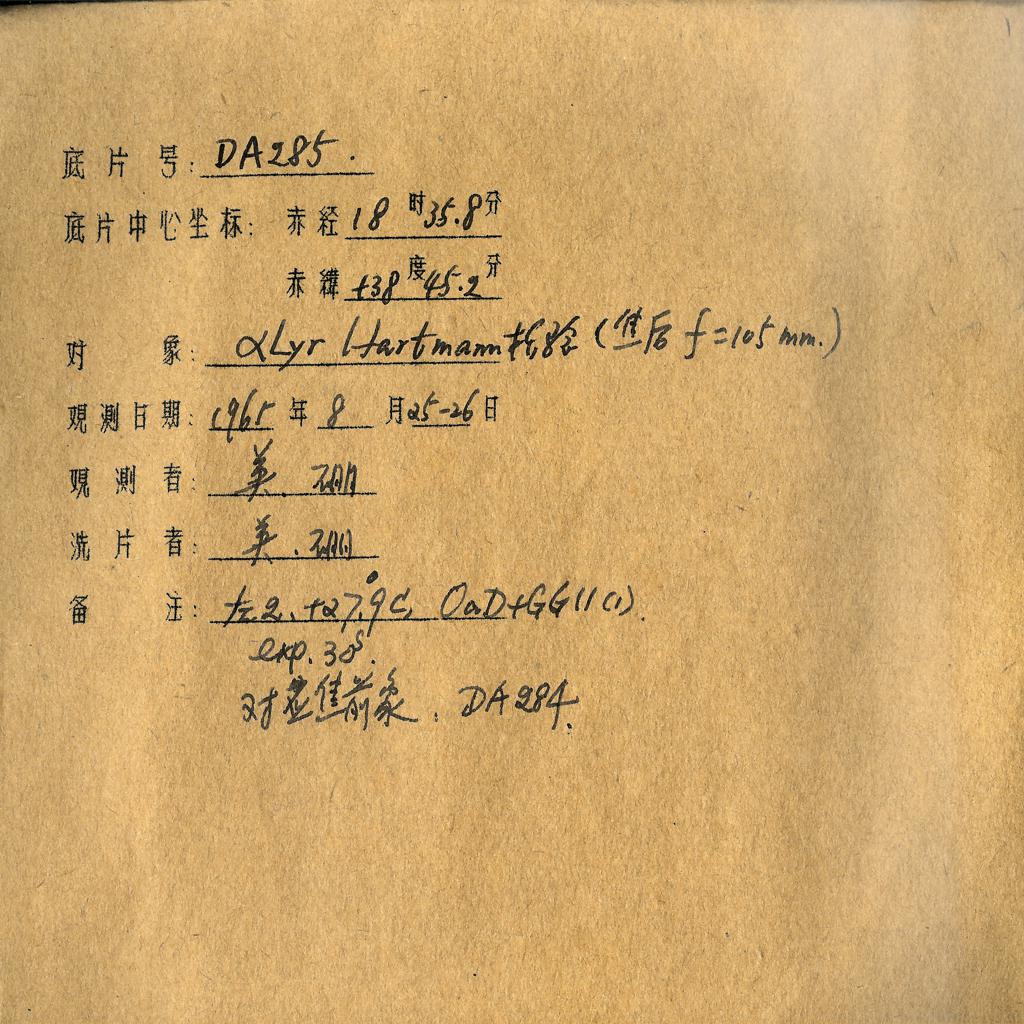 底片号: DA285.
底片中心坐标: 赤经 18时35.8分
赤纬 +38度45.2分
对象: αLyr Hartmann 检验 (焦后 f=105mm.)
观测日期: 1965年8月25-26日
观测者: 美.
洗片者: 美.
备注: 2. +27.°9C, OaD+GG11(1).
exp. 30s.
对应焦前象. DA284.